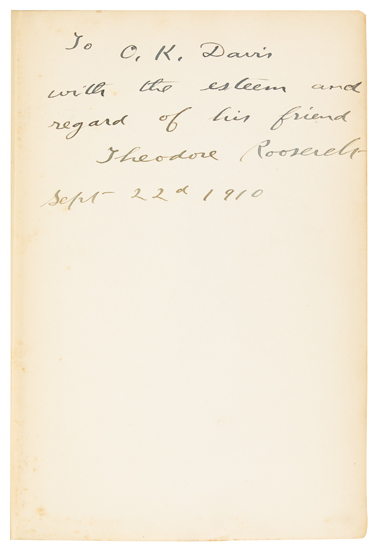 To O. K. Davis
with the esteem and
regard of his friend
Theodore Roosevelt
Sept 22d 1910